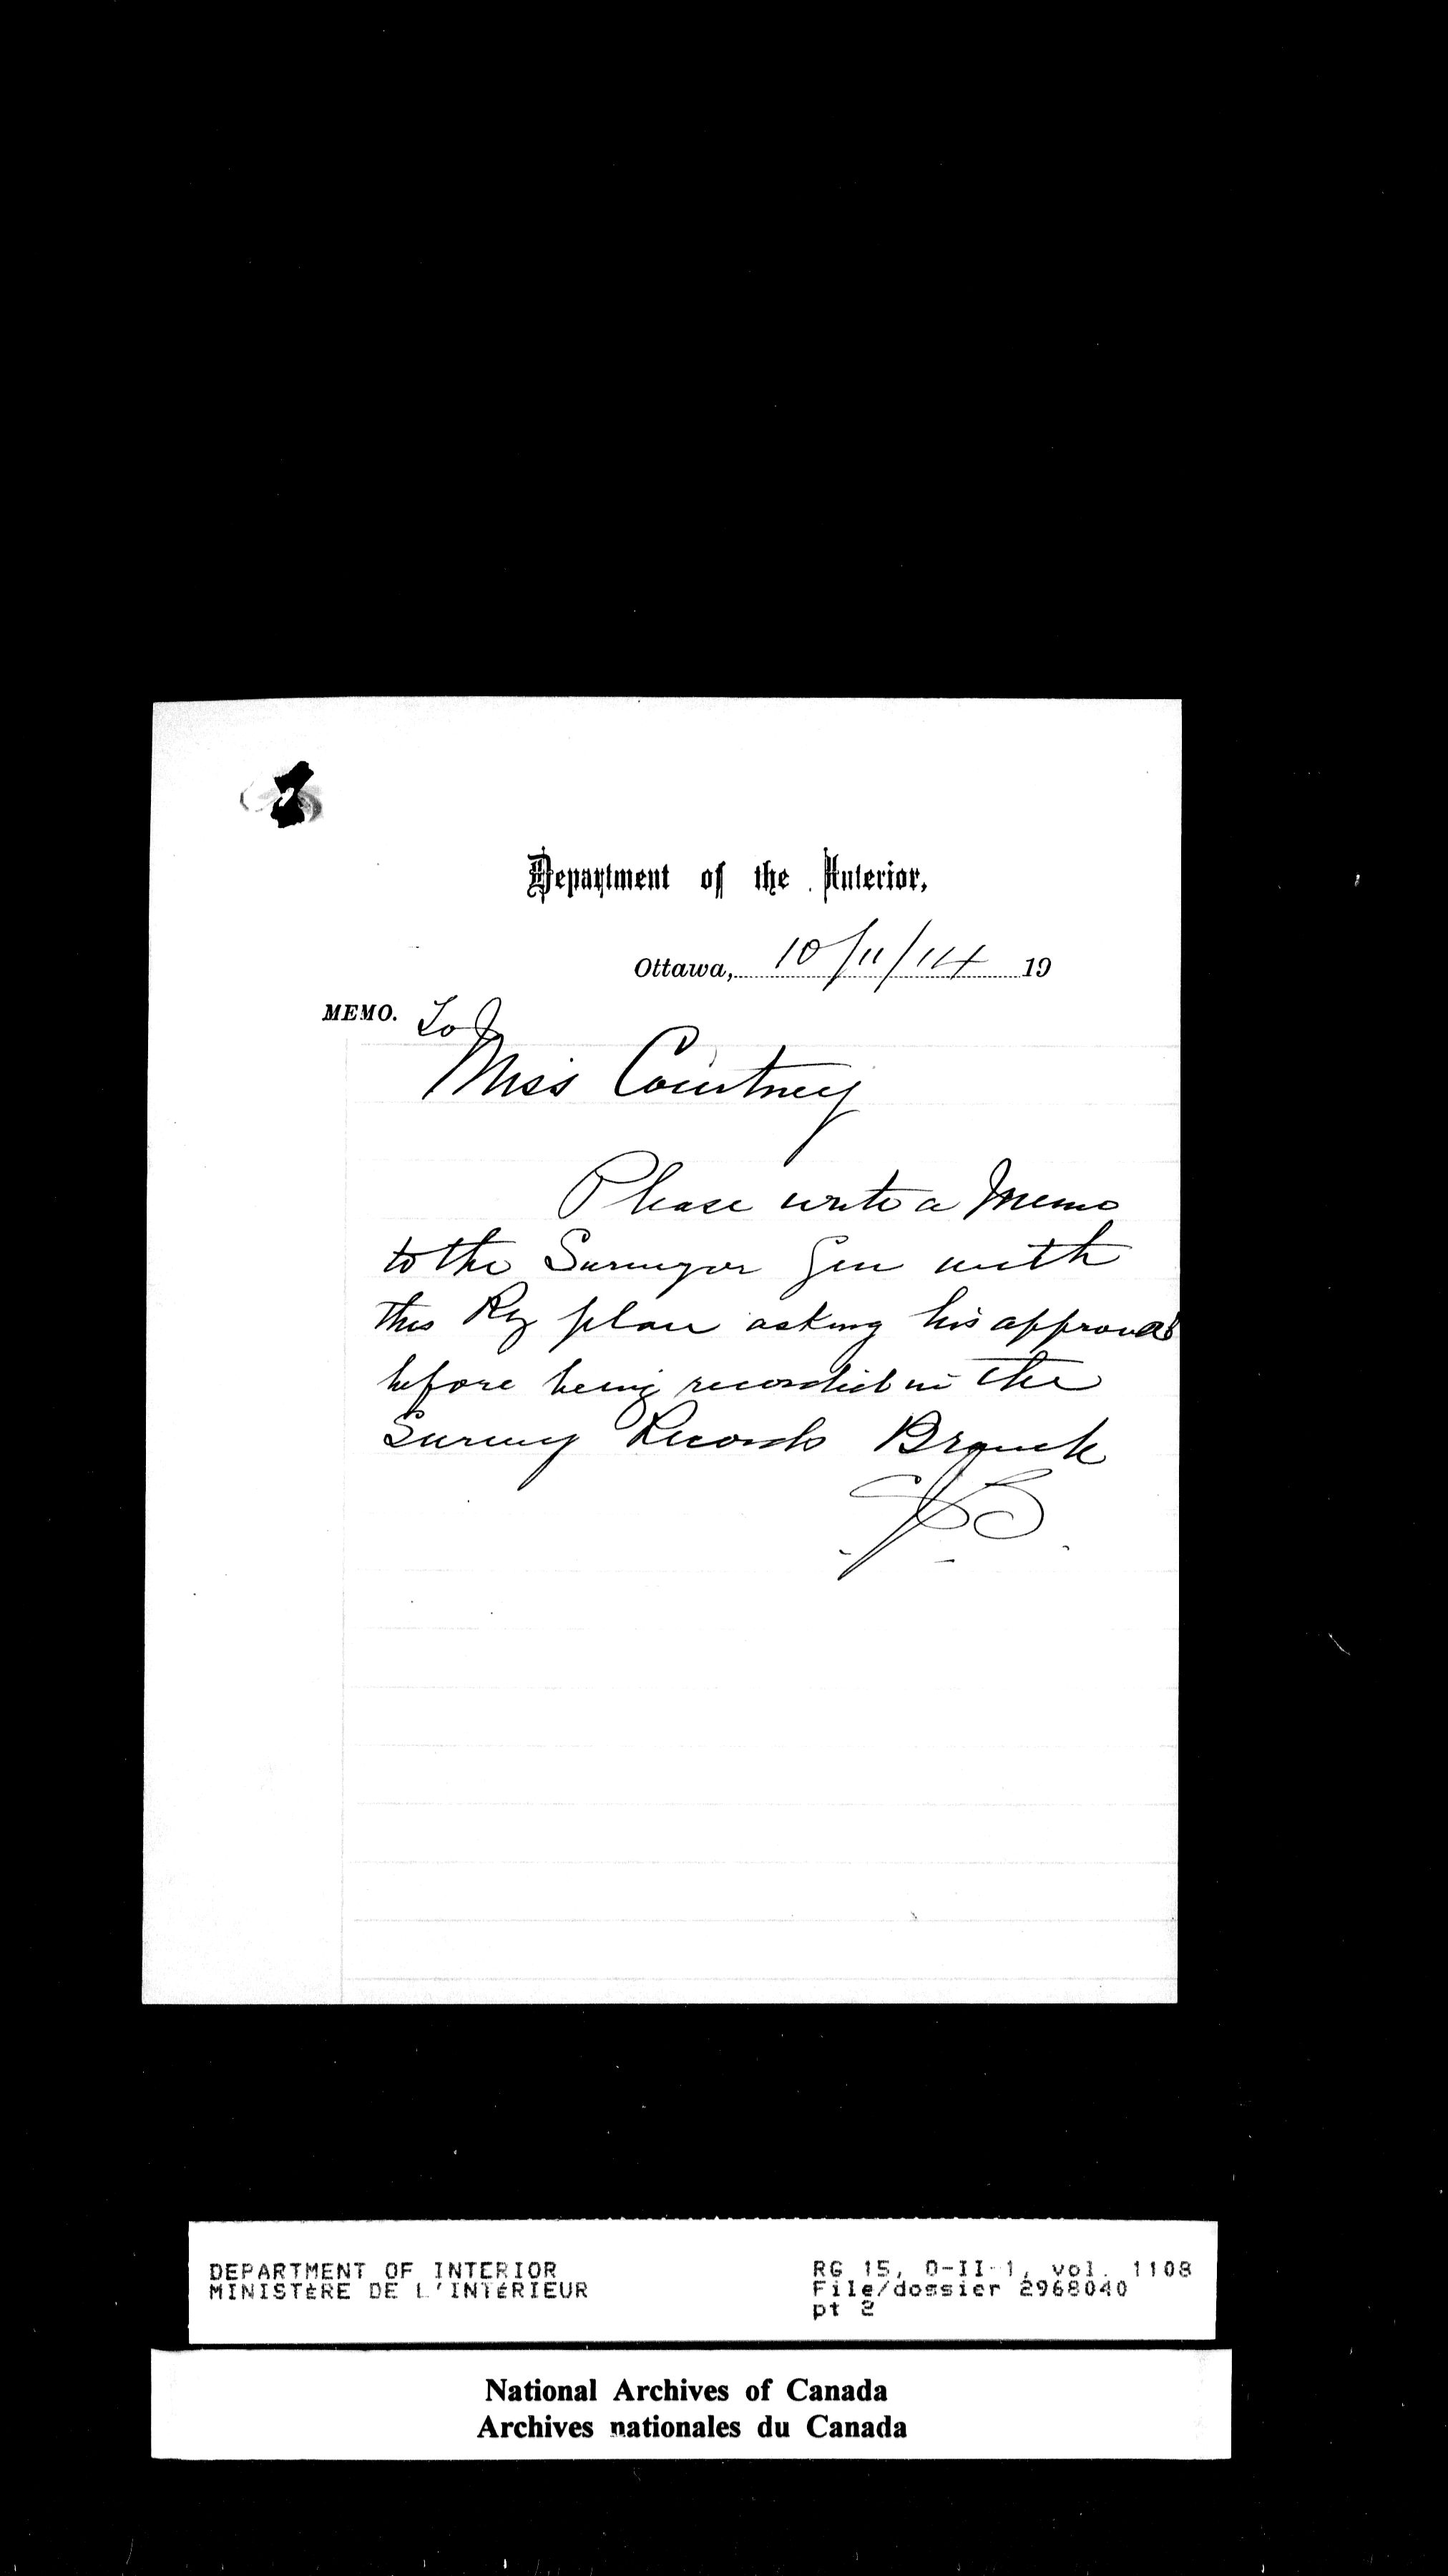 Department of the Interior,
Ottawa, 10/11/14 19
MEMO. To
Miss Courtney
Please write a Memo
to the Surveyor Gen with
this Ry plan asking his approval
before being recorded in the
Survey Records Branch
DEPARTMENT OF INTERIOR
MINISTÈRE DE L'INTÉRIEUR
RG 15, D-II-1, vol. 1108
File/dossier 2968040
pt 2
National Archives of Canada
Archives nationales du Canada